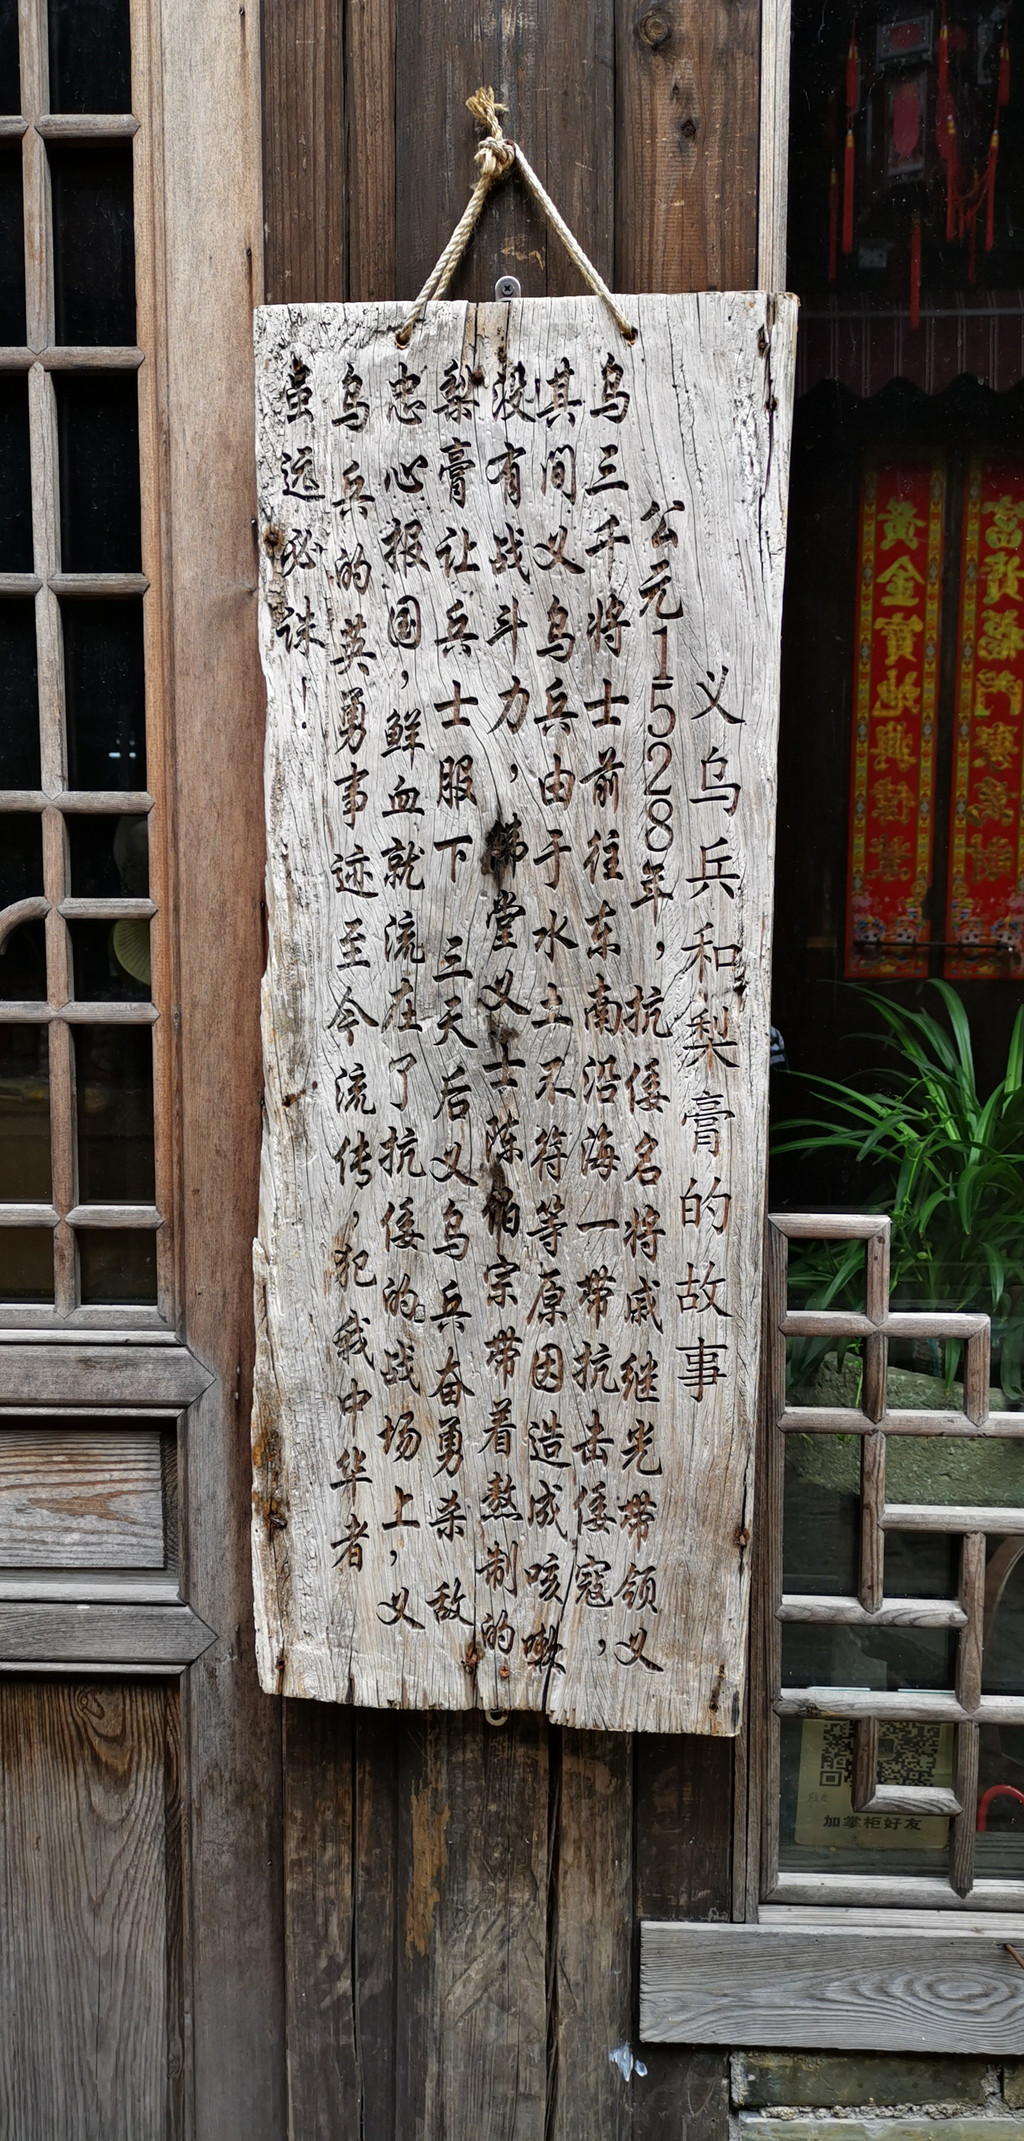 义乌兵和梨膏的故事
公元1528年，抗倭名将戚继光带领义
乌三千将士前往东南沿海一带抗击倭寇，
其间义乌兵由于水土不符等原因造成咳嗽
没有战斗力，佛堂义士陈柏宗带着熬制的
梨膏让兵士服下三天后义乌兵奋勇杀敌
忠心报国，鲜血就流在了抗倭的战场上，义
乌兵的英勇事迹至今流传，犯我中华者
虽远必诛！
黄金宝地
富贵龙门
加掌柜好友